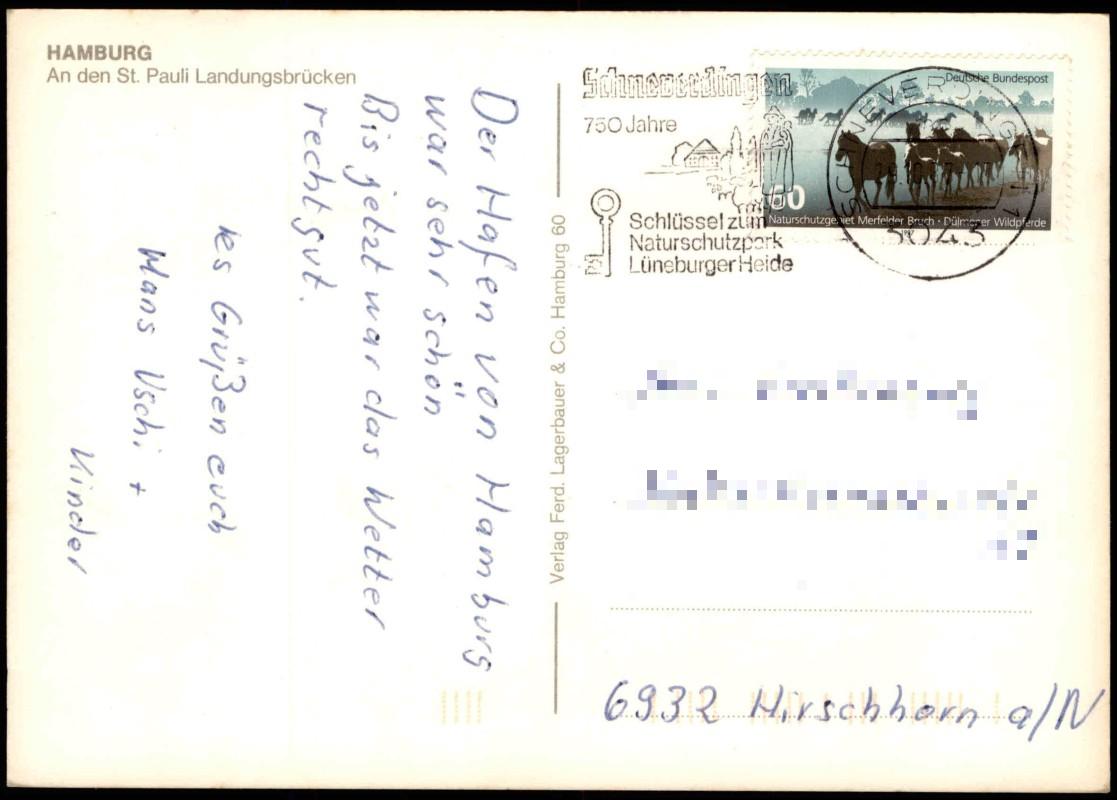 HAMBURG
An den St. Pauli Landungsbrücken
Der Hafen von Hamburg
war sehr schön
Bis jetzt war das Wetter
recht gut.
es Grüßen euch
Hans Uschi +
Kinder
Verlag Ferd. Lagerbauer & Co. Hamburg 60
Schneverdingen
750 Jahre
Schlüssel zum
Naturschutzpark
Lüneburger Heide
Deutsche Bundespost
60
Naturschutzgebiet Merfelder Bruch · Dülmener Wildpferde
SCHNEVERDINGEN 1
3043
6932 Hirschhorn a/N